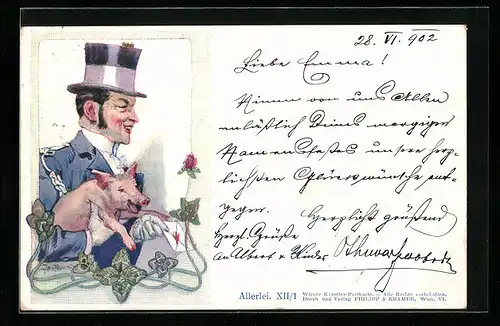 28. VI. 902
Liebe Emma!
Nimm von uns Allen
anläßlich Deines morgigen
Namensfestes unsere herz-
lichsten Glückwünsche ent-
gegen. Herzlich grüßend
Herzl. Grüße
an Albert & Kinder Othmar
Allerlei. XII/1 Wiener Künstler-Postkarte. – Alle Rechte vorbehalten.
Druck und Verlag PHILIPP & KRAMER, Wien, VI.